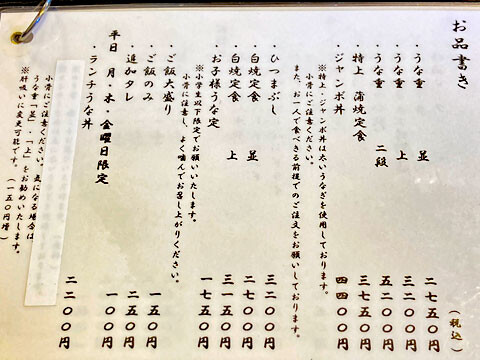 お品書き
(税込)
・うな重 並 二七五〇円
・うな重 上 三二〇〇円
・うな重 二段 五二〇〇円
・特上 蒲焼定食 三七五〇円
・ジャンボ丼 四四〇〇円
※特上・ジャンボ丼は太いうなぎを使用しております。
小骨にご注意ください。
また、お一人で食べきる前提でのご注文をお願いしております。
・ひつまぶし 三二〇〇円
・白焼定食 並 二七〇〇円
・白焼定食 上 三一五〇円
・お子様うな定 一七五〇円
※小学生以下限定でお願いいたします。
小骨に注意し、よく噛んでお召し上がりください。
・ご飯大盛り 一五〇円
・ご飯のみ 二五〇円
・追加タレ 一〇〇円
平日 月・水・金曜日限定
・ランチうな丼 二二〇〇円
小骨にご注意ください。気になる場合は
うな重「並」・「上」をお勧めいたします。
※肝吸いに変更可能です。(一五〇円増)